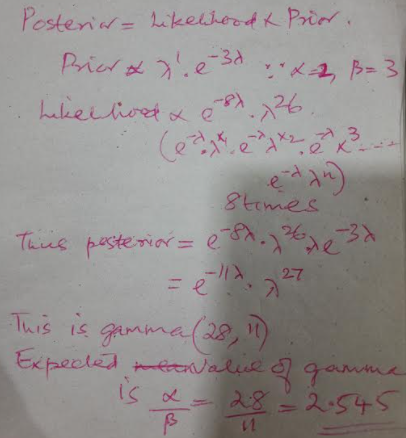 Posterior = Likelihood x Prior.
Prior ∝ λ¹. e^{-3λ} ∵ α=2, β=3
Likelihood ∝ e^{-8λ}. λ^{26}
(e^{-λ}.λ^{x1}. e^{-λ}λ^{x2}. e^{-λ}λ^{x3} ----
e^{-λ}λ^{n})
8 times
Thus posterior = e^{-8λ}. λ^{26}. λe^{-3λ}
= e^{-11λ}. λ^{27}
This is gamma(28, 11)
Expected value of gamma
is α/β = 28/11 = 2.545